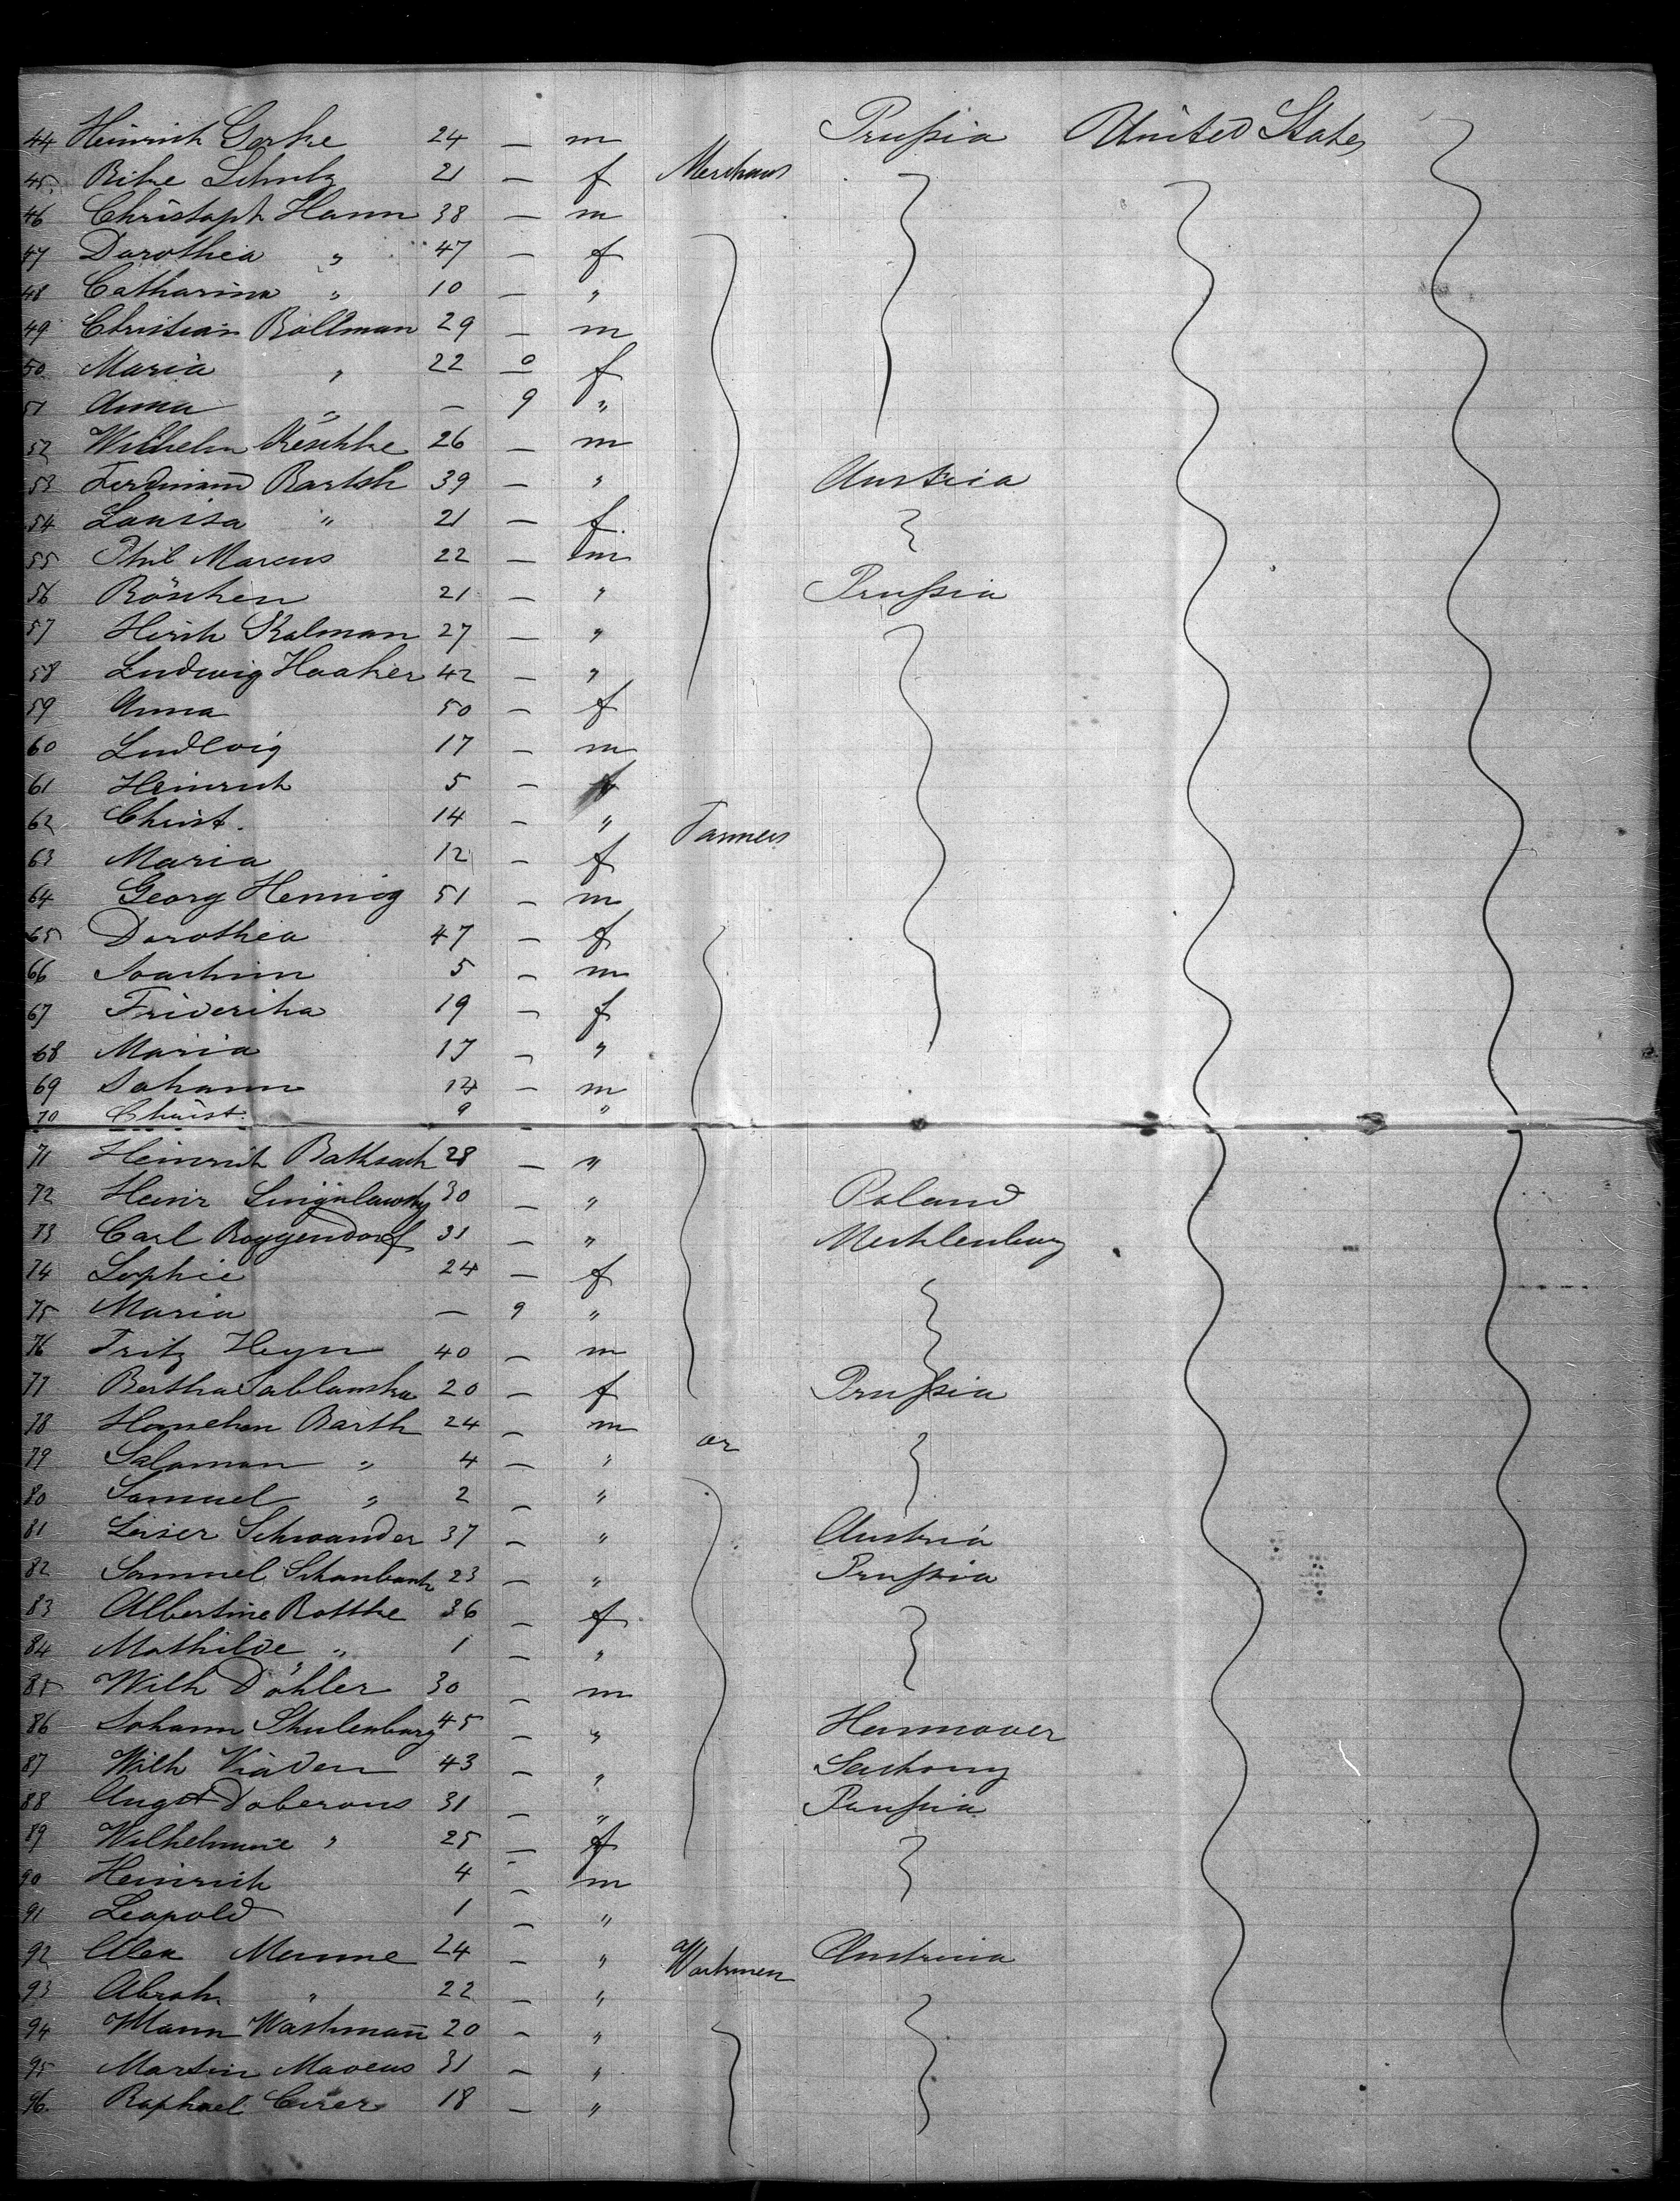 44 Heinrich Gerke 24 — m Prussia United States
45 Rike Schulz 21 — f Merchants
46 Christoph Hann 38 — m
47 Dorothea " 47 — f
48 Catharina " 10 — "
49 Christian Bollman 29 — m
50 Maria " 22 0 f
51 Anna " — 9 "
52 Wilhelm 26 — m
53 Ferdinand Bartsh 39 — " Austria
54 Louisa " 21 — f
55 Phil Marcus 22 — m
56 Röschen 21 — " Prussia
57 Hirsh Kalman 27 — "
58 Ludwig Haaker 42 — "
59 Anna 50 — f
60 Ludwig 17 — m
61 Heinrich 5 —
62 Christ. 14 — " Farmers
63 Maria 12 — f
64 Georg Hennig 51 — m
65 Dorothea 47 — f
66 Joachim 5 — m
67 Friderika 19 — f
68 Maria 17 — "
69 Johann 14 — m
70 Christ. 9 "
71 Heinrich 28 — "
72 Heinr 30 — " Poland
73 Carl Roggendorf 31 — " Mecklenburg
74 Sophie 24 — f
75 Maria — 9 "
76 Fritz Heyn 40 — m
77 Bertha Sablonska 20 — f Prussia
78 Barth 24 — m or
79 Salaman " 4 — "
80 Samuel " 2 — "
81 Leiser Schwander 37 — " Austria
82 Samuel 23 — " Prussia
83 Albertine Rottke 36 — f
84 Mathilde " 1 — "
85 Wilh Döhler 30 — m
86 Johann Shulenburg 45 — " Hannover
87 Wilh 43 — " Sachony
88 Augst Doberous 31 — " Prussia
89 Wilhelmine " 25 — f
90 Heinrich 4 — m
91 Leapold 1 — "
92 Alex 24 — " Workmen Austria
93 Abrah " 22 — "
94 Mann Washmann 20 — "
95 Martin 31 — "
96. Raphael 18 — "